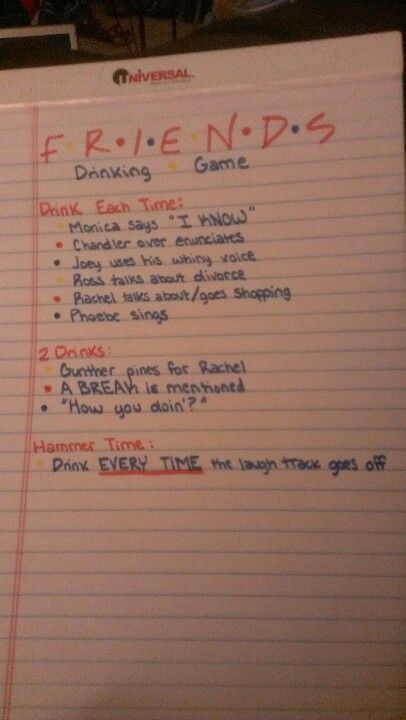 UNIVERSAL
F•R•I•E•N•D•S
Drinking • Game
Drink Each Time:
• Monica says "I KNOW"
• Chandler over enunciates
• Joey uses his whiny voice
• Ross talks about divorce
• Rachel talks about/goes shopping
• Phoebe sings
2 Drinks:
• Gunther pines for Rachel
• A BREAK is mentioned
• "How you doin'?"
Hammer Time:
• Drink EVERY TIME the laugh track goes off